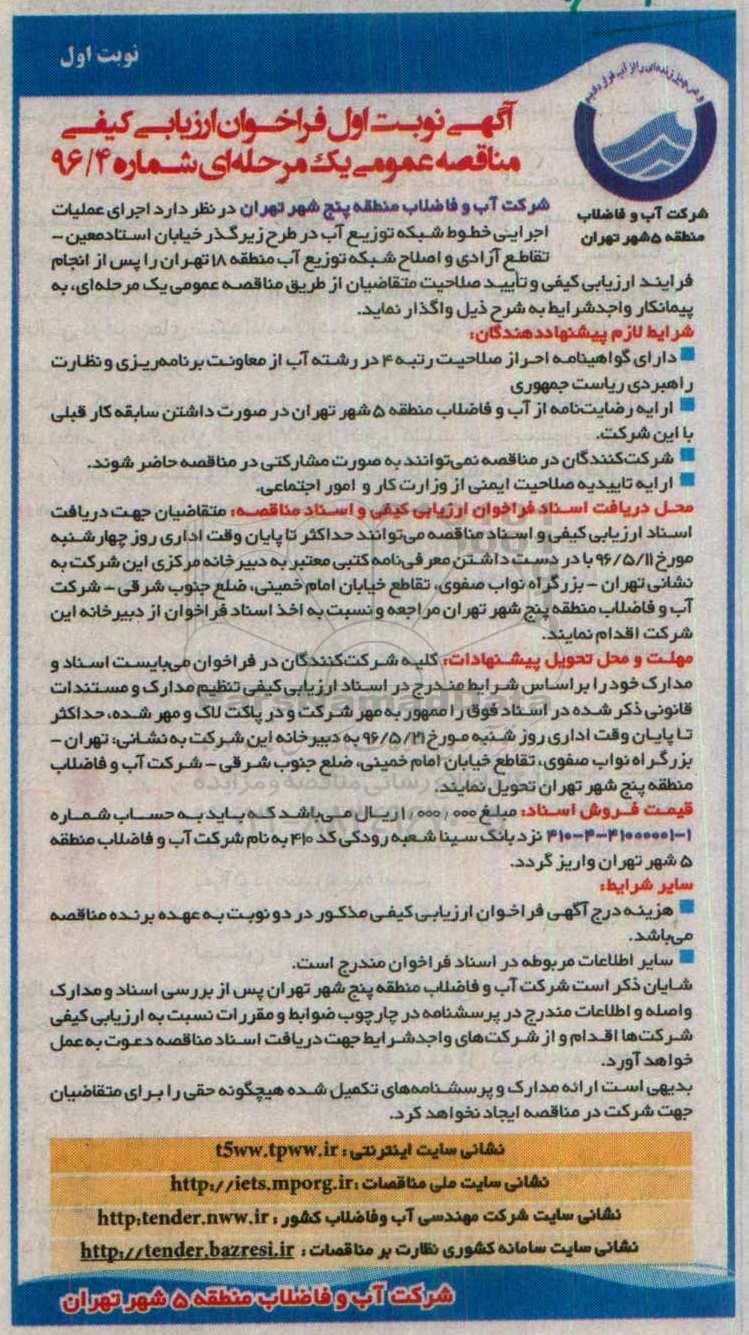 نوبت اول
و من هر چیز زنده‌ای را از آب قرار دادیم
شرکت آب و فاضلاب
منطقه ۵ شهر تهران
آگهی نوبت اول فراخوان ارزیابی کیفی
مناقصه عمومی یک مرحله‌ای شماره ۹۶/۴
شرکت آب و فاضلاب منطقه پنج شهر تهران در نظر دارد اجرای عملیات
اجرایی خطوط شبکه توزیع آب در طرح زیرگذر خیابان استادمعین -
تقاطع آزادی و اصلاح شبکه توزیع آب منطقه ۱۸ تهران را پس از انجام
فرایند ارزیابی کیفی و تأیید صلاحیت متقاضیان از طریق مناقصه عمومی یک مرحله‌ای، به
پیمانکار واجدشرایط به شرح ذیل واگذار نماید.
شرایط لازم پیشنهاددهندگان:
دارای گواهینامه احراز صلاحیت رتبه ۴ در رشته آب از معاونت برنامه‌ریزی و نظارت
راهبردی ریاست جمهوری
ارایه رضایت‌نامه از آب و فاضلاب منطقه ۵ شهر تهران در صورت داشتن سابقه کار قبلی
با این شرکت.
شرکت‌کنندگان در مناقصه نمی‌توانند به صورت مشارکتی در مناقصه حاضر شوند.
ارایه تاییدیه صلاحیت ایمنی از وزارت کار و امور اجتماعی.
محل دریافت اسناد فراخوان ارزیابی کیفی و اسناد مناقصه: متقاضیان جهت دریافت
اسناد ارزیابی کیفی و اسناد مناقصه می‌توانند حداکثر تا پایان وقت اداری روز چهارشنبه
مورخ ۹۶/۵/۱۱ با در دست داشتن معرفی‌نامه کتبی معتبر به دبیرخانه مرکزی این شرکت به
نشانی تهران - بزرگراه نواب صفوی، تقاطع خیابان امام خمینی، ضلع جنوب شرقی - شرکت
آب و فاضلاب منطقه پنج شهر تهران مراجعه و نسبت به اخذ اسناد فراخوان از دبیرخانه این
شرکت اقدام نمایند.
مهلت و محل تحویل پیشنهادات: کلیه شرکت‌کنندگان در فراخوان می‌بایست اسناد و
مدارک خود را براساس شرایط مندرج در اسناد ارزیابی کیفی تنظیم مدارک و مستندات
قانونی ذکر شده در اسناد فوق را ممهور به مهر شرکت و در پاکت لاک و مهر شده، حداکثر
تا پایان وقت اداری روز شنبه مورخ ۹۶/۵/۲۱ به دبیرخانه این شرکت به نشانی: تهران -
بزرگراه نواب صفوی، تقاطع خیابان امام خمینی، ضلع جنوب شرقی - شرکت آب و فاضلاب
منطقه پنج شهر تهران تحویل نمایند.
قیمت فروش اسناد: مبلغ ۱٫۰۰۰٫۰۰۰ ریال می‌باشد که باید به حساب شماره
۱-۴۱۰-۴-۴۱۰۰۰۰۰۱ نزد بانک سینا شعبه رودکی کد ۴۱۰ به نام شرکت آب و فاضلاب منطقه
۵ شهر تهران واریز گردد.
سایر شرایط:
هزینه درج آگهی فراخوان ارزیابی کیفی مذکور در دو نوبت به عهده برنده مناقصه
می‌باشد.
سایر اطلاعات مربوطه در اسناد فراخوان مندرج است.
شایان ذکر است شرکت آب و فاضلاب منطقه پنج شهر تهران پس از بررسی اسناد و مدارک
واصله و اطلاعات مندرج در پرسشنامه در چارچوب ضوابط و مقررات نسبت به ارزیابی کیفی
شرکت‌ها اقدام و از شرکت‌های واجدشرایط جهت دریافت اسناد مناقصه دعوت به عمل
خواهد آورد.
بدیهی است ارائه مدارک و پرسشنامه‌های تکمیل شده هیچگونه حقی را برای متقاضیان
جهت شرکت در مناقصه ایجاد نخواهد کرد.
نشانی سایت اینترنتی: t5ww.tpww.ir
نشانی سایت ملی مناقصات: http://iets.mporg.ir
نشانی سایت شرکت مهندسی آب وفاضلاب کشور: http:tender.nww.ir
نشانی سایت سامانه کشوری نظارت بر مناقصات: http://tender.bazresi.ir
شرکت آب و فاضلاب منطقه ۵ شهر تهران